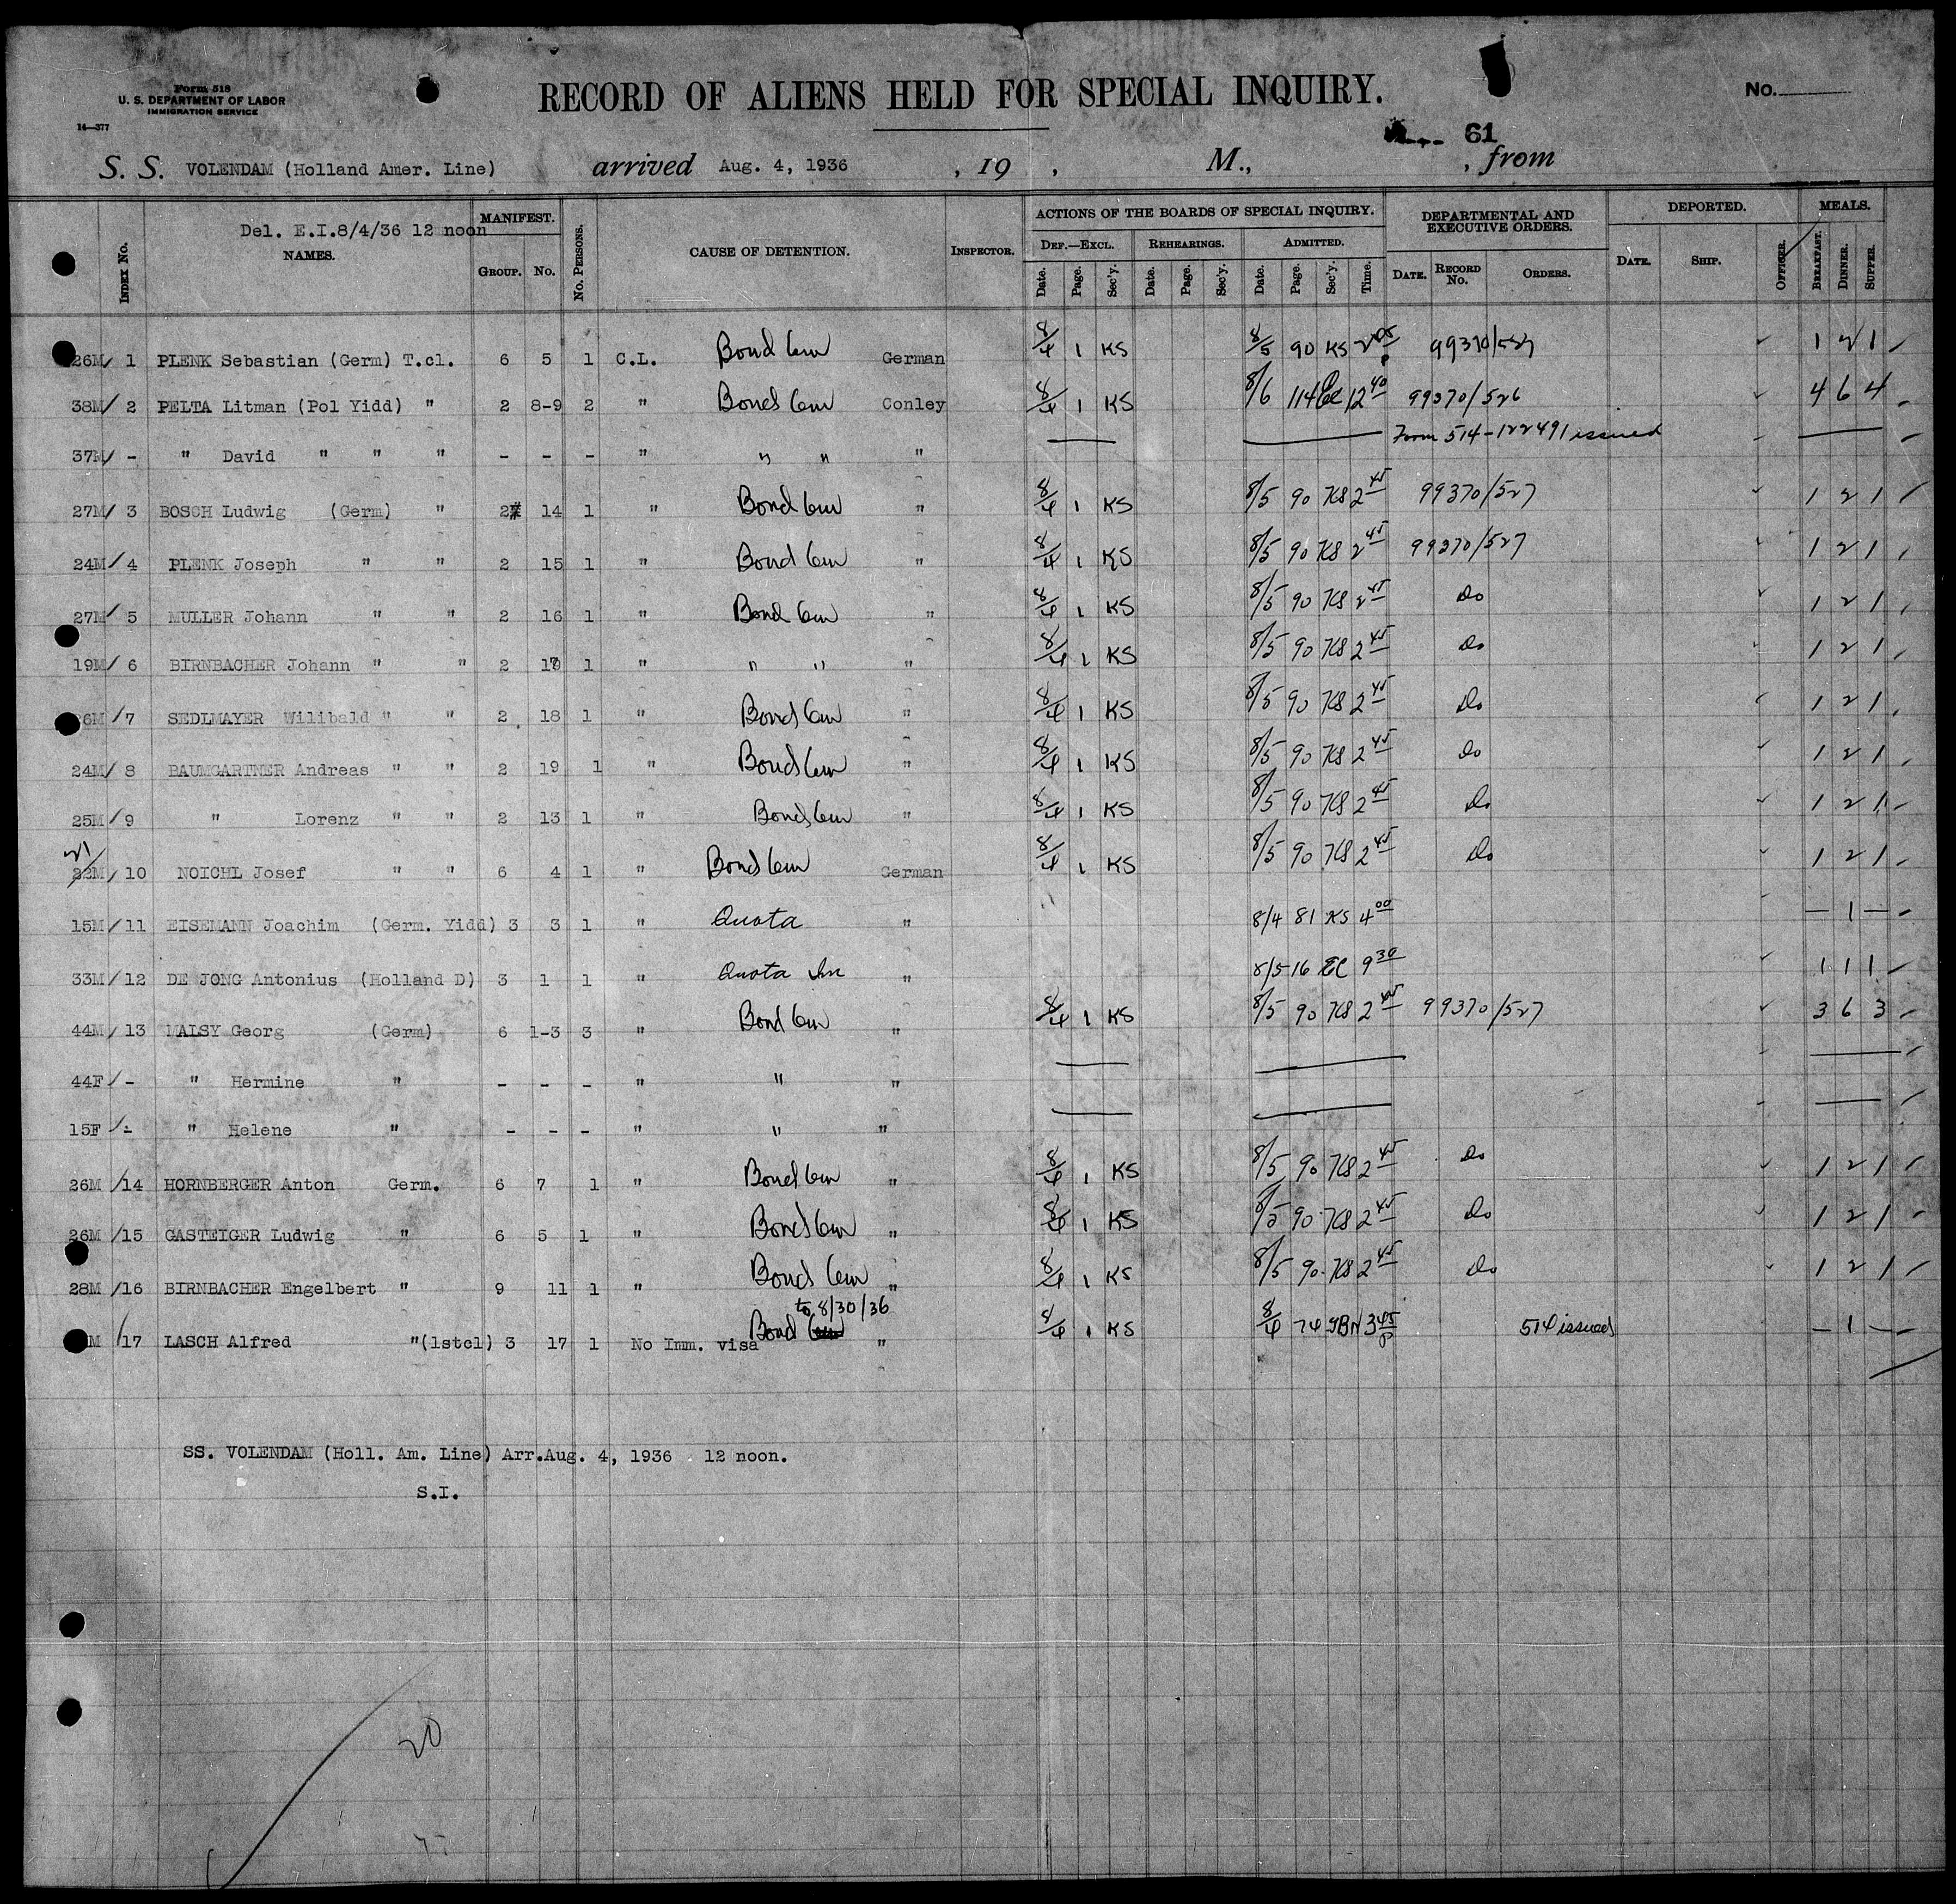 Form 518
U. S. DEPARTMENT OF LABOR
IMMIGRATION SERVICE
14—377
RECORD OF ALIENS HELD FOR SPECIAL INQUIRY.
No.
61
S. S. VOLENDAM (Holland Amer. Line) arrived Aug. 4, 1936 , 19 , M., , from
Del. E.I.8/4/36 12 noon
INDEX No. NAMES. MANIFEST. GROUP. No. No. PERSONS. CAUSE OF DETENTION. INSPECTOR. ACTIONS OF THE BOARDS OF SPECIAL INQUIRY. DEF.—EXCL. Date. Page. Sec'y. REHEARINGS. Date. Page. Sec'y. ADMITTED. Date. Page. Sec'y. Time. DEPARTMENTAL AND EXECUTIVE ORDERS. DATE. RECORD No. ORDERS. DEPORTED. DATE. SHIP. OFFICER. MEALS. BREAKFAST. DINNER. SUPPER.
26M/ 1 PLENK Sebastian (Germ) T.cl. 6 5 1 C.L. Bond 6m German 8/4 1 KS 8/5 90 KS 2 45 P 99370/527 1 2 1
38M/ 2 PELTA Litman (Pol Yidd) " 2 8-9 2 " Bond 6m Conley 8/4 1 KS 8/6 114 12 40 99370/526 4 6 4
Form 514-122491 issued
37M/ - " David " " " - - - " " " "
27M/ 3 BOSCH Ludwig (Germ) " 2 14 1 " Bond 6m " 8/4 1 KS 8/5 90 KS 2 45 99370/527 1 2 1
24M/ 4 PLENK Joseph " " 2 15 1 " Bond 6m " 8/4 1 KS 8/5 90 KS 2 45 99370/527 1 2 1
27M/ 5 MULLER Johann " " 2 16 1 " Bond 6m " 8/4 1 KS 8/5 90 KS 2 45 Do 1 2 1
19M/ 6 BIRNBACHER Johann " " 2 17 1 " " " " 8/4 1 KS 8/5 90 KS 2 45 Do 1 2 1
6M /7 SEDLMAYER Wilibald " " 2 18 1 " Bond 6m " 8/4 1 KS 8/5 90 KS 2 45 Do 1 2 1
24M/ 8 BAUMGARTNER Andreas " " 2 19 1 " Bond 6m " 8/4 1 KS 8/5 90 KS 2 45 Do 1 2 1
25M /9 " Lorenz " " 2 13 1 " Bond 6m " 8/4 1 KS 8/5 90 KS 2 45 Do 1 2 1
21
22M/ 10 NOICHL Josef " " 6 4 1 " Bond 6m German 8/4 1 KS 8/5 90 KS 2 45 Do 1 2 1
15M/ 11 EISEMANN Joachim (Germ. Yidd) 3 3 1 " Quota " 8/4 81 KS 4 00 — 1 —
33M/ 12 DE JONG Antonius (Holland D) 3 1 1 " Quota " 8/5 16 EC 9 30 1 1 1
44M/ 13 MAISY Georg (Germ) 6 1-3 3 " Bond 6m " 8/4 1 KS 8/5 90 KS 2 45 99370/527 3 6 3
44F/ - " Hermine " - - - " " "
15F /- " Helene " - - - " " "
26M /14 HORNBERGER Anton Germ. 6 7 1 " Bond 6m " 8/4 1 KS 8/5 90 KS 2 45 Do 1 2 1
26M /15 GASTEIGER Ludwig " 6 5 1 " Bond 6m " 8/4 1 KS 8/5 90 KS 2 45 Do 1 2 1
28M /16 BIRNBACHER Engelbert " 9 11 1 " Bond 6m " 8/4 1 KS 8/5 90 KS 2 45 Do 1 2 1
to 8/30/36
M /17 LASCH Alfred "(1stcl) 3 17 1 No Imm. visa Bond " 8/4 1 KS 8/4 74 3 45 P 514 issued — 1 —
SS. VOLENDAM (Holl. Am. Line) Arr.Aug. 4, 1936 12 noon.
S.I.
20